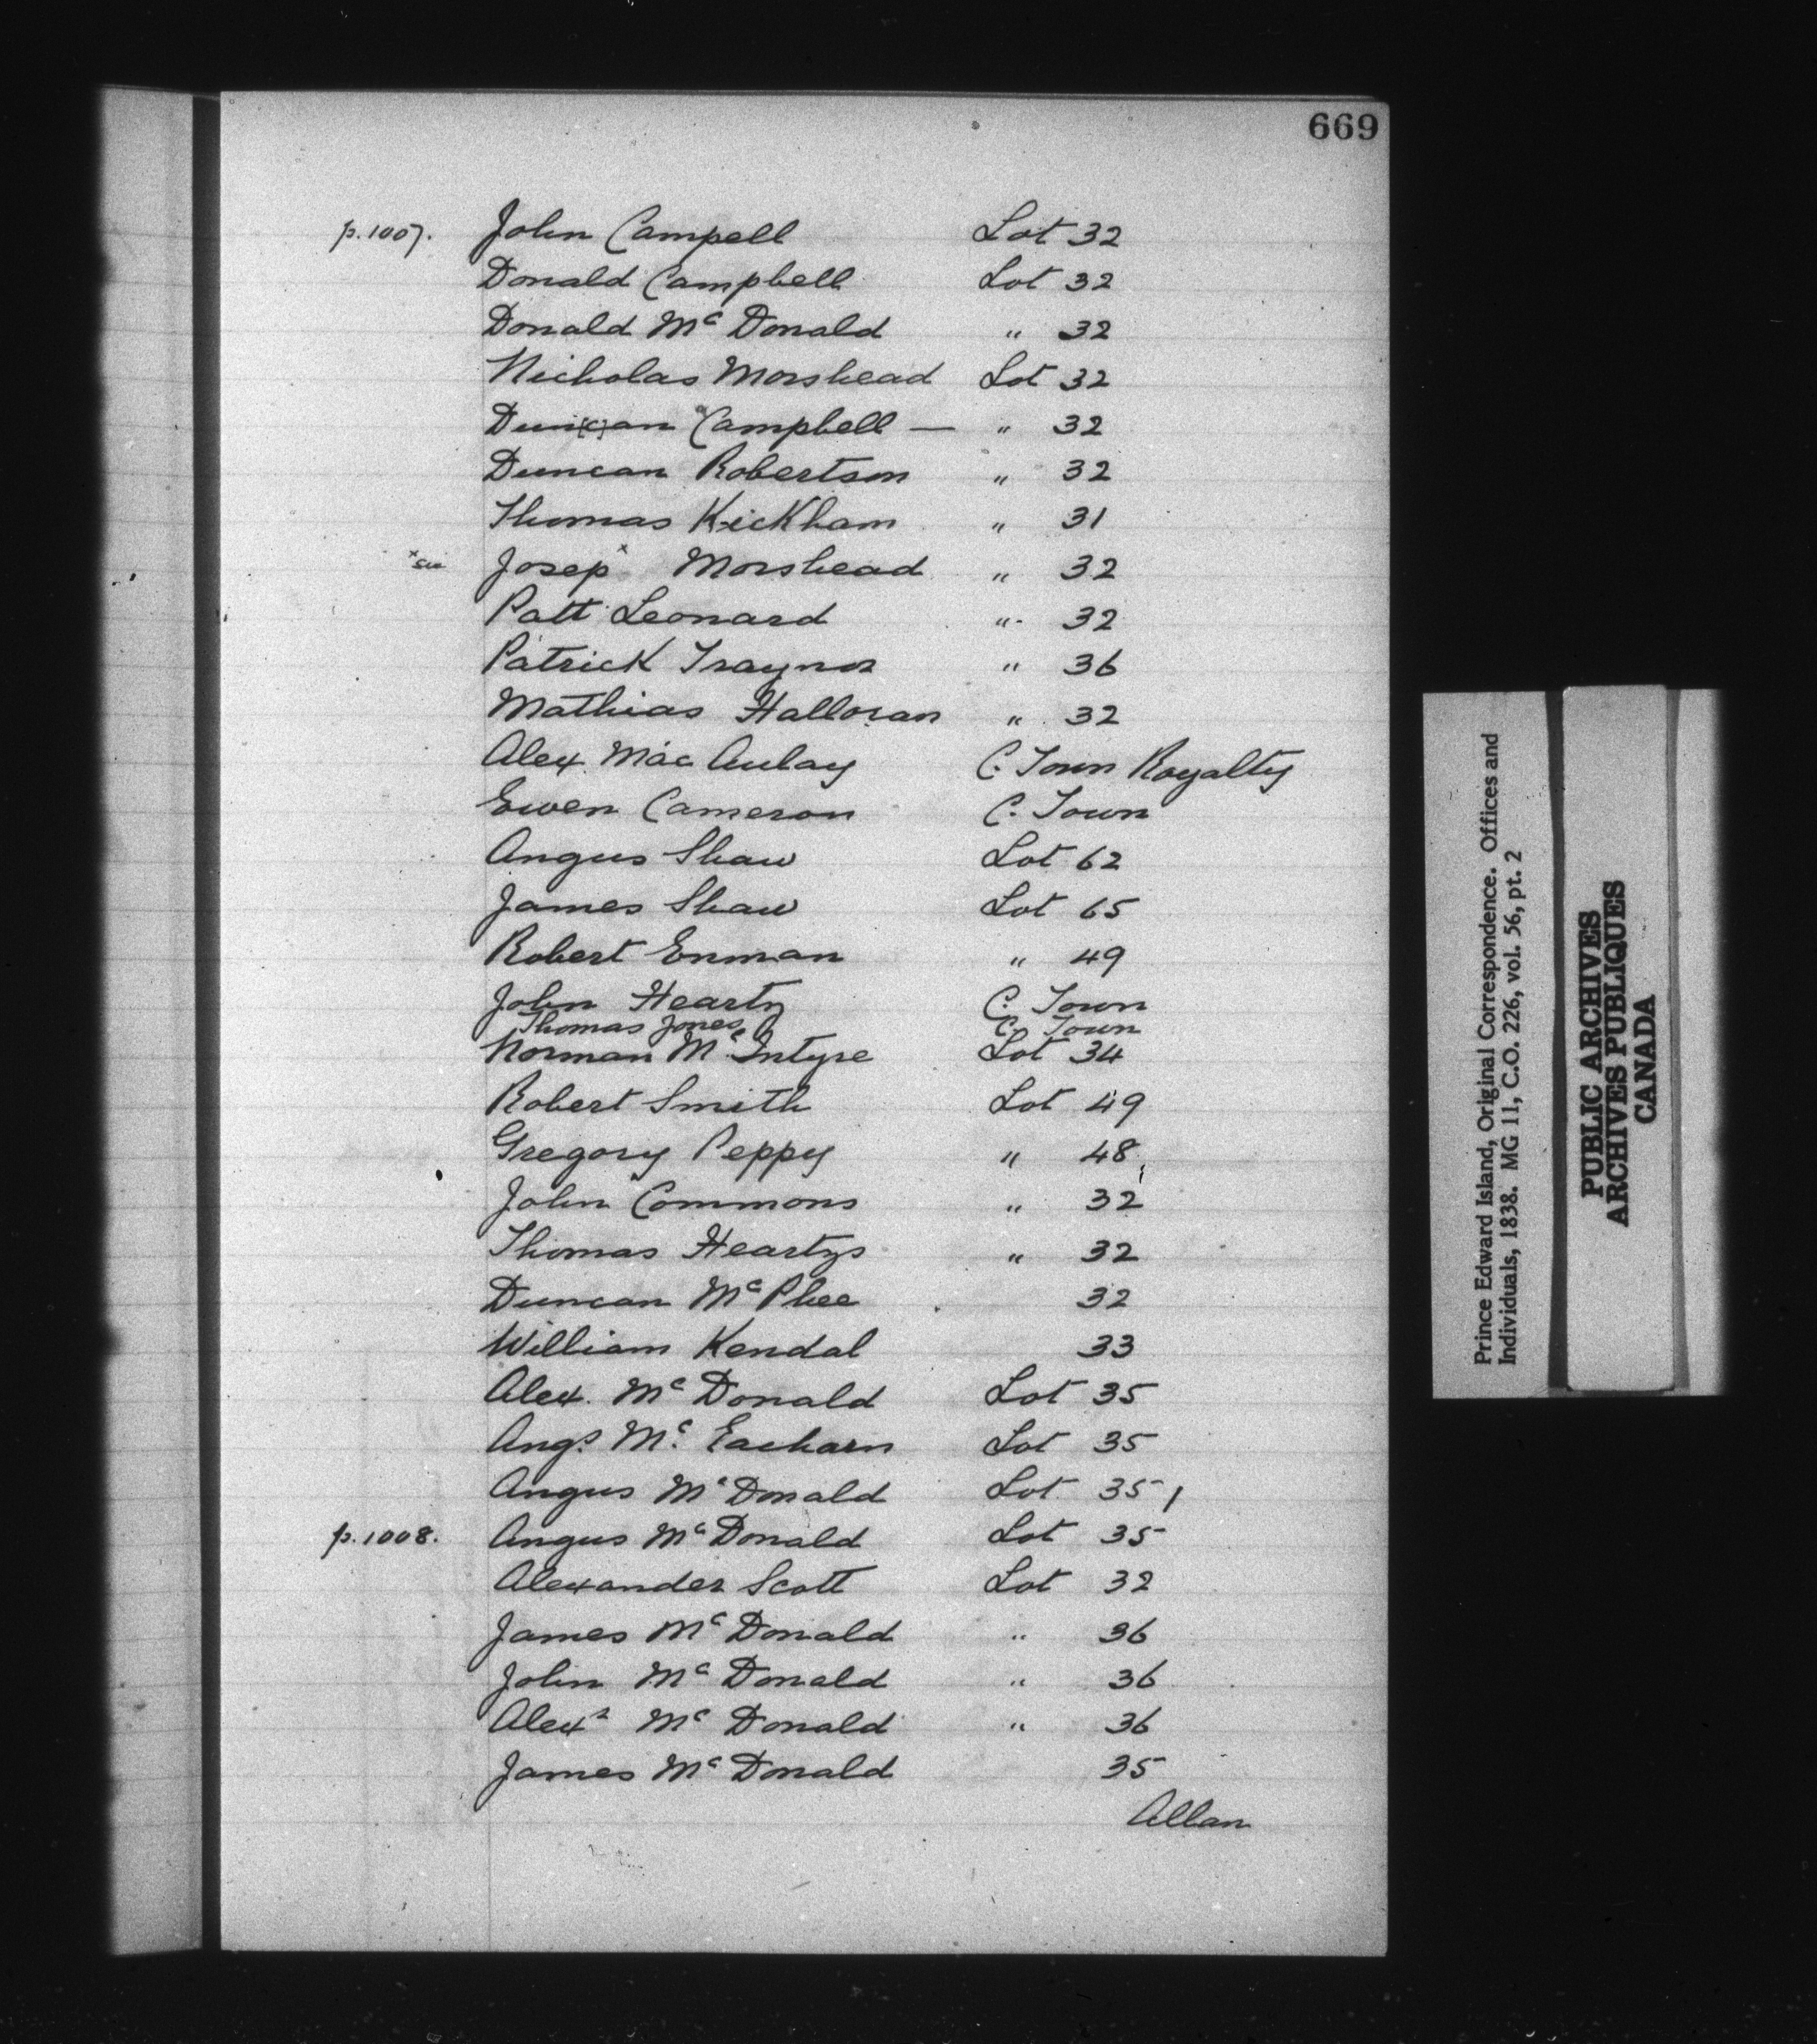 669
p.1007. John Campell Lot 32
Donald Campbell Lot 32
Donald Mc Donald " 32
Nicholas Morshead Lot 32
Dun[c]an Campbell — " 32
Duncan Robertson " 32
Thomas Kickham " 31
x sic Josep x Morshead " 32
Patt Leonard " 32
Patrick Traynor " 36
Mathias Halloran " 32
Alex. Mac Aulay C. Town Royalty
Ewen Cameron C. Town
Angus Shaw Lot 62
James Shaw Lot 65
Robert Enman " 49
John Hearty C. Town
Thomas Jones C. Town
Norman Mc Intyre Lot 34
Robert Smith Lot 49
Gregory Peppy " 48
John Commons " 32
Thomas Heartys " 32
Duncan Mc Phee 32
William Kendal 33
Alex. Mc Donald Lot 35
Angs. Mc. Eacharn Lot 35
Angus Mc Donald Lot 35 /
p.1008. Angus Mc Donald Lot 35
Alexander Scott Lot 32
James Mc Donald " 36
John Mc Donald " 36
Alexr Mc Donald " 36
James Mc Donald 35
Allan
Prince Edward Island, Original Correspondence. Offices and
Individuals, 1838. MG 11, C.O. 226, vol. 56, pt. 2
PUBLIC ARCHIVES
ARCHIVES PUBLIQUES
CANADA